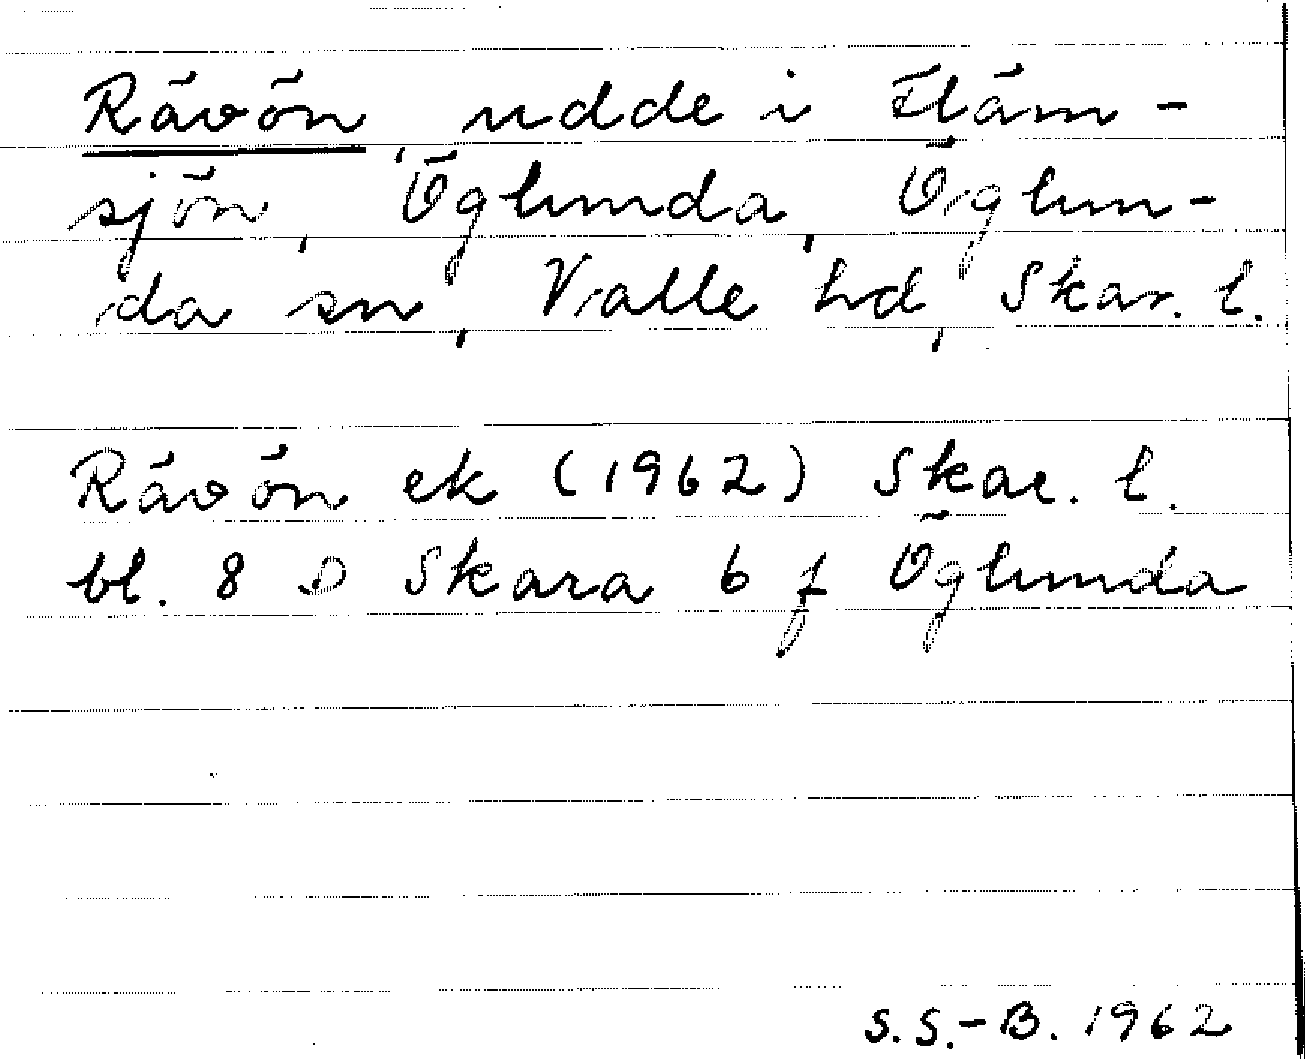 Rävön, udde i Fläm-
sjön, Öglunda, Öglun-
da sn, Valle hd, Skar. l.
Rävön ek (1962) Skar. l.
bl. 8 D Skara 6 f Öglunda
S.S.-B. 1962